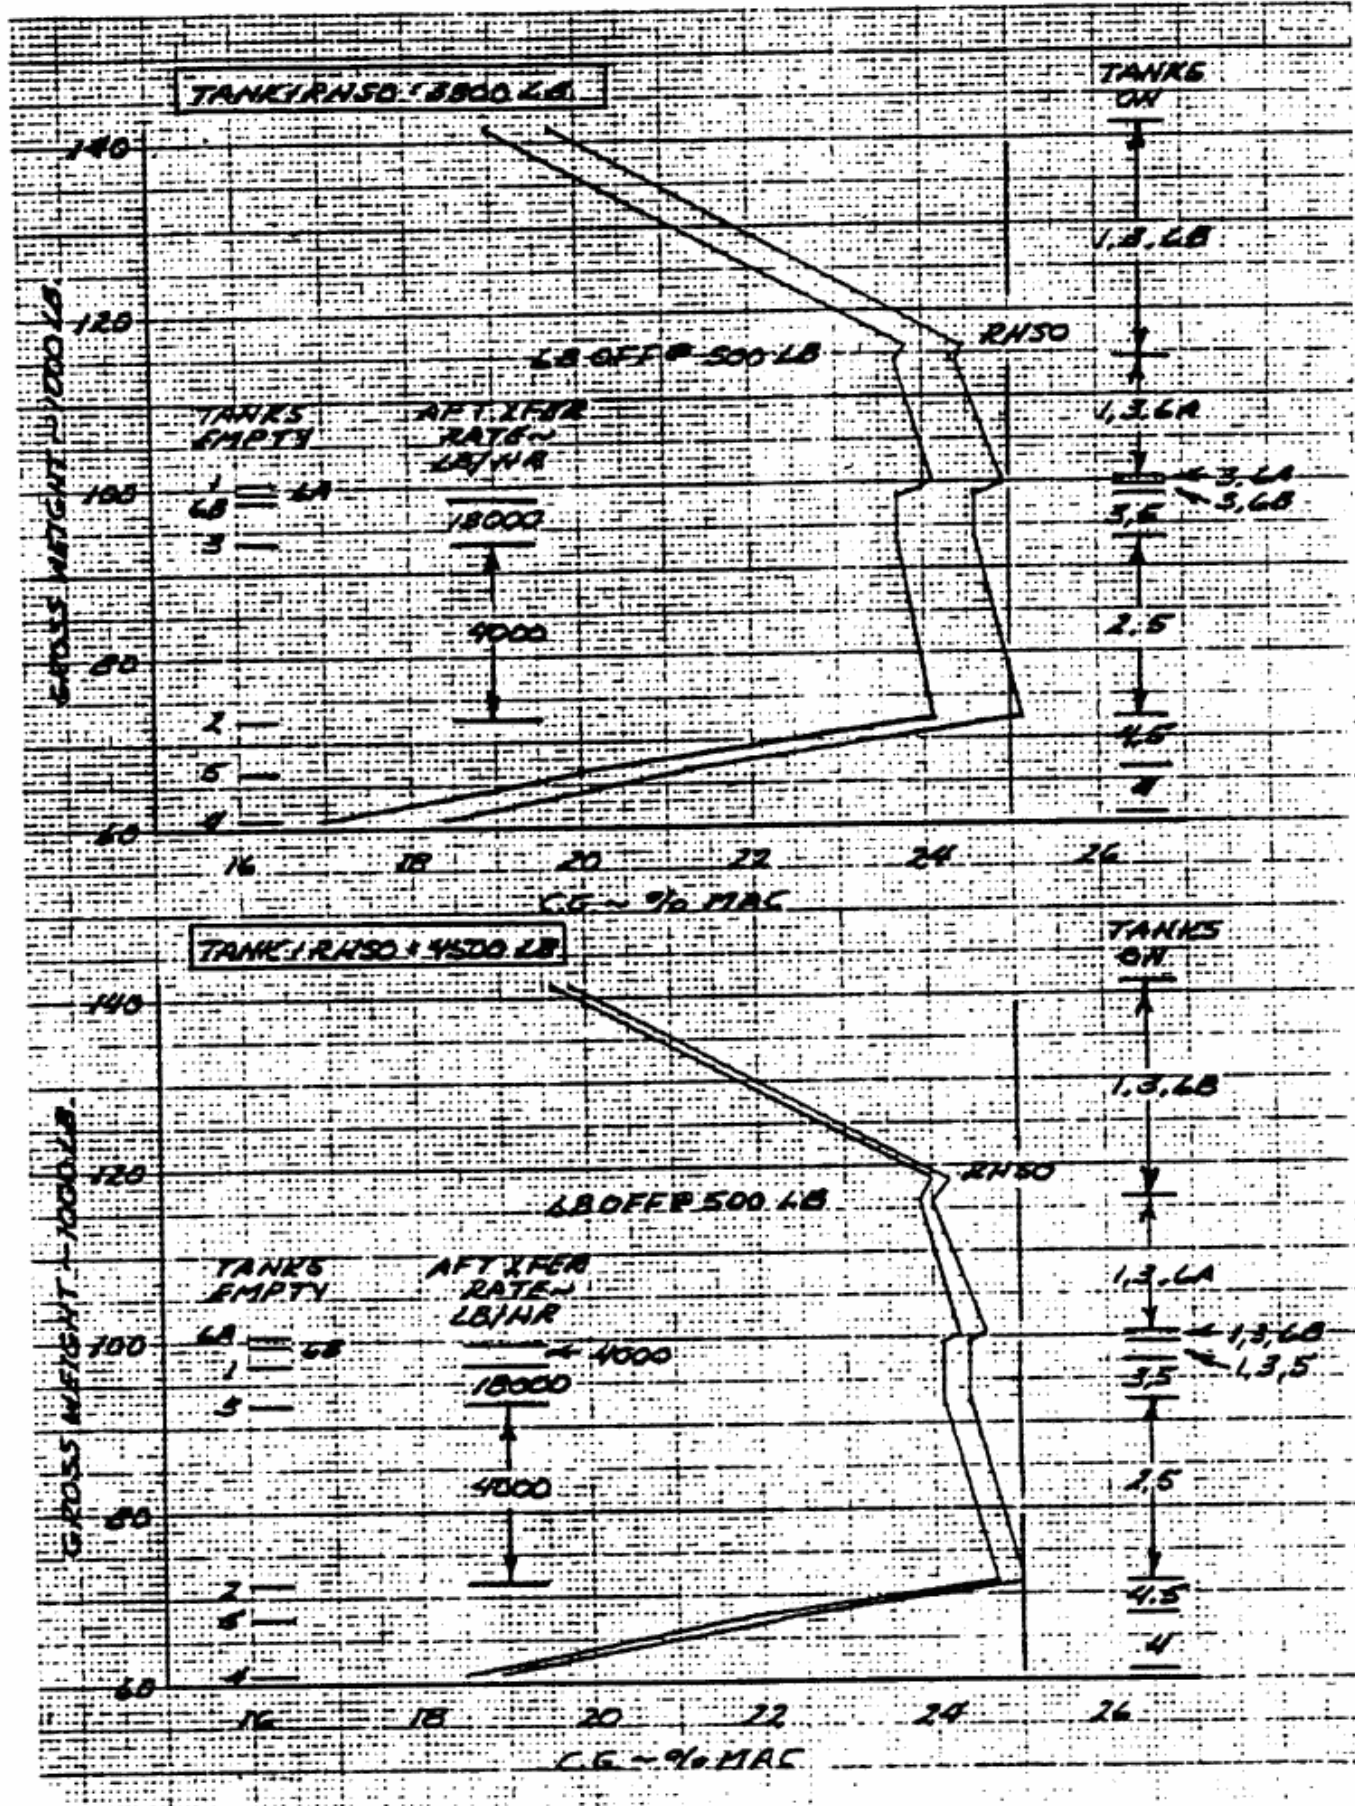 TANKS
ON
140
1,3,6B
120
RHSO
6B OFF @ 500 LB
1,3,6A
TANKS
EMPTY
AFT XFER
RATE ~
LB/HR
1
100
6A
6B
18000
3,6A
3,6B
3
4000
2,5
80
2
4,5
5
4
4
60
16 18 20 22 24 26
C.G. ~ % MAC
GROSS WEIGHT ~ 1000 LB.
TANKS
ON
140
1,3,6B
120
RHSO
6B OFF @ 500 LB
TANKS
EMPTY
AFT XFER
RATE ~
LB/HR
1,3,6A
100
6B
4000
1,3,6B
1
18000
3,5
1,3,5
4000
2,5
80
2
4,5
4
4
60
16 18 20 22 24 26
C.G. ~ % MAC
GROSS WEIGHT ~ 1000 LB.